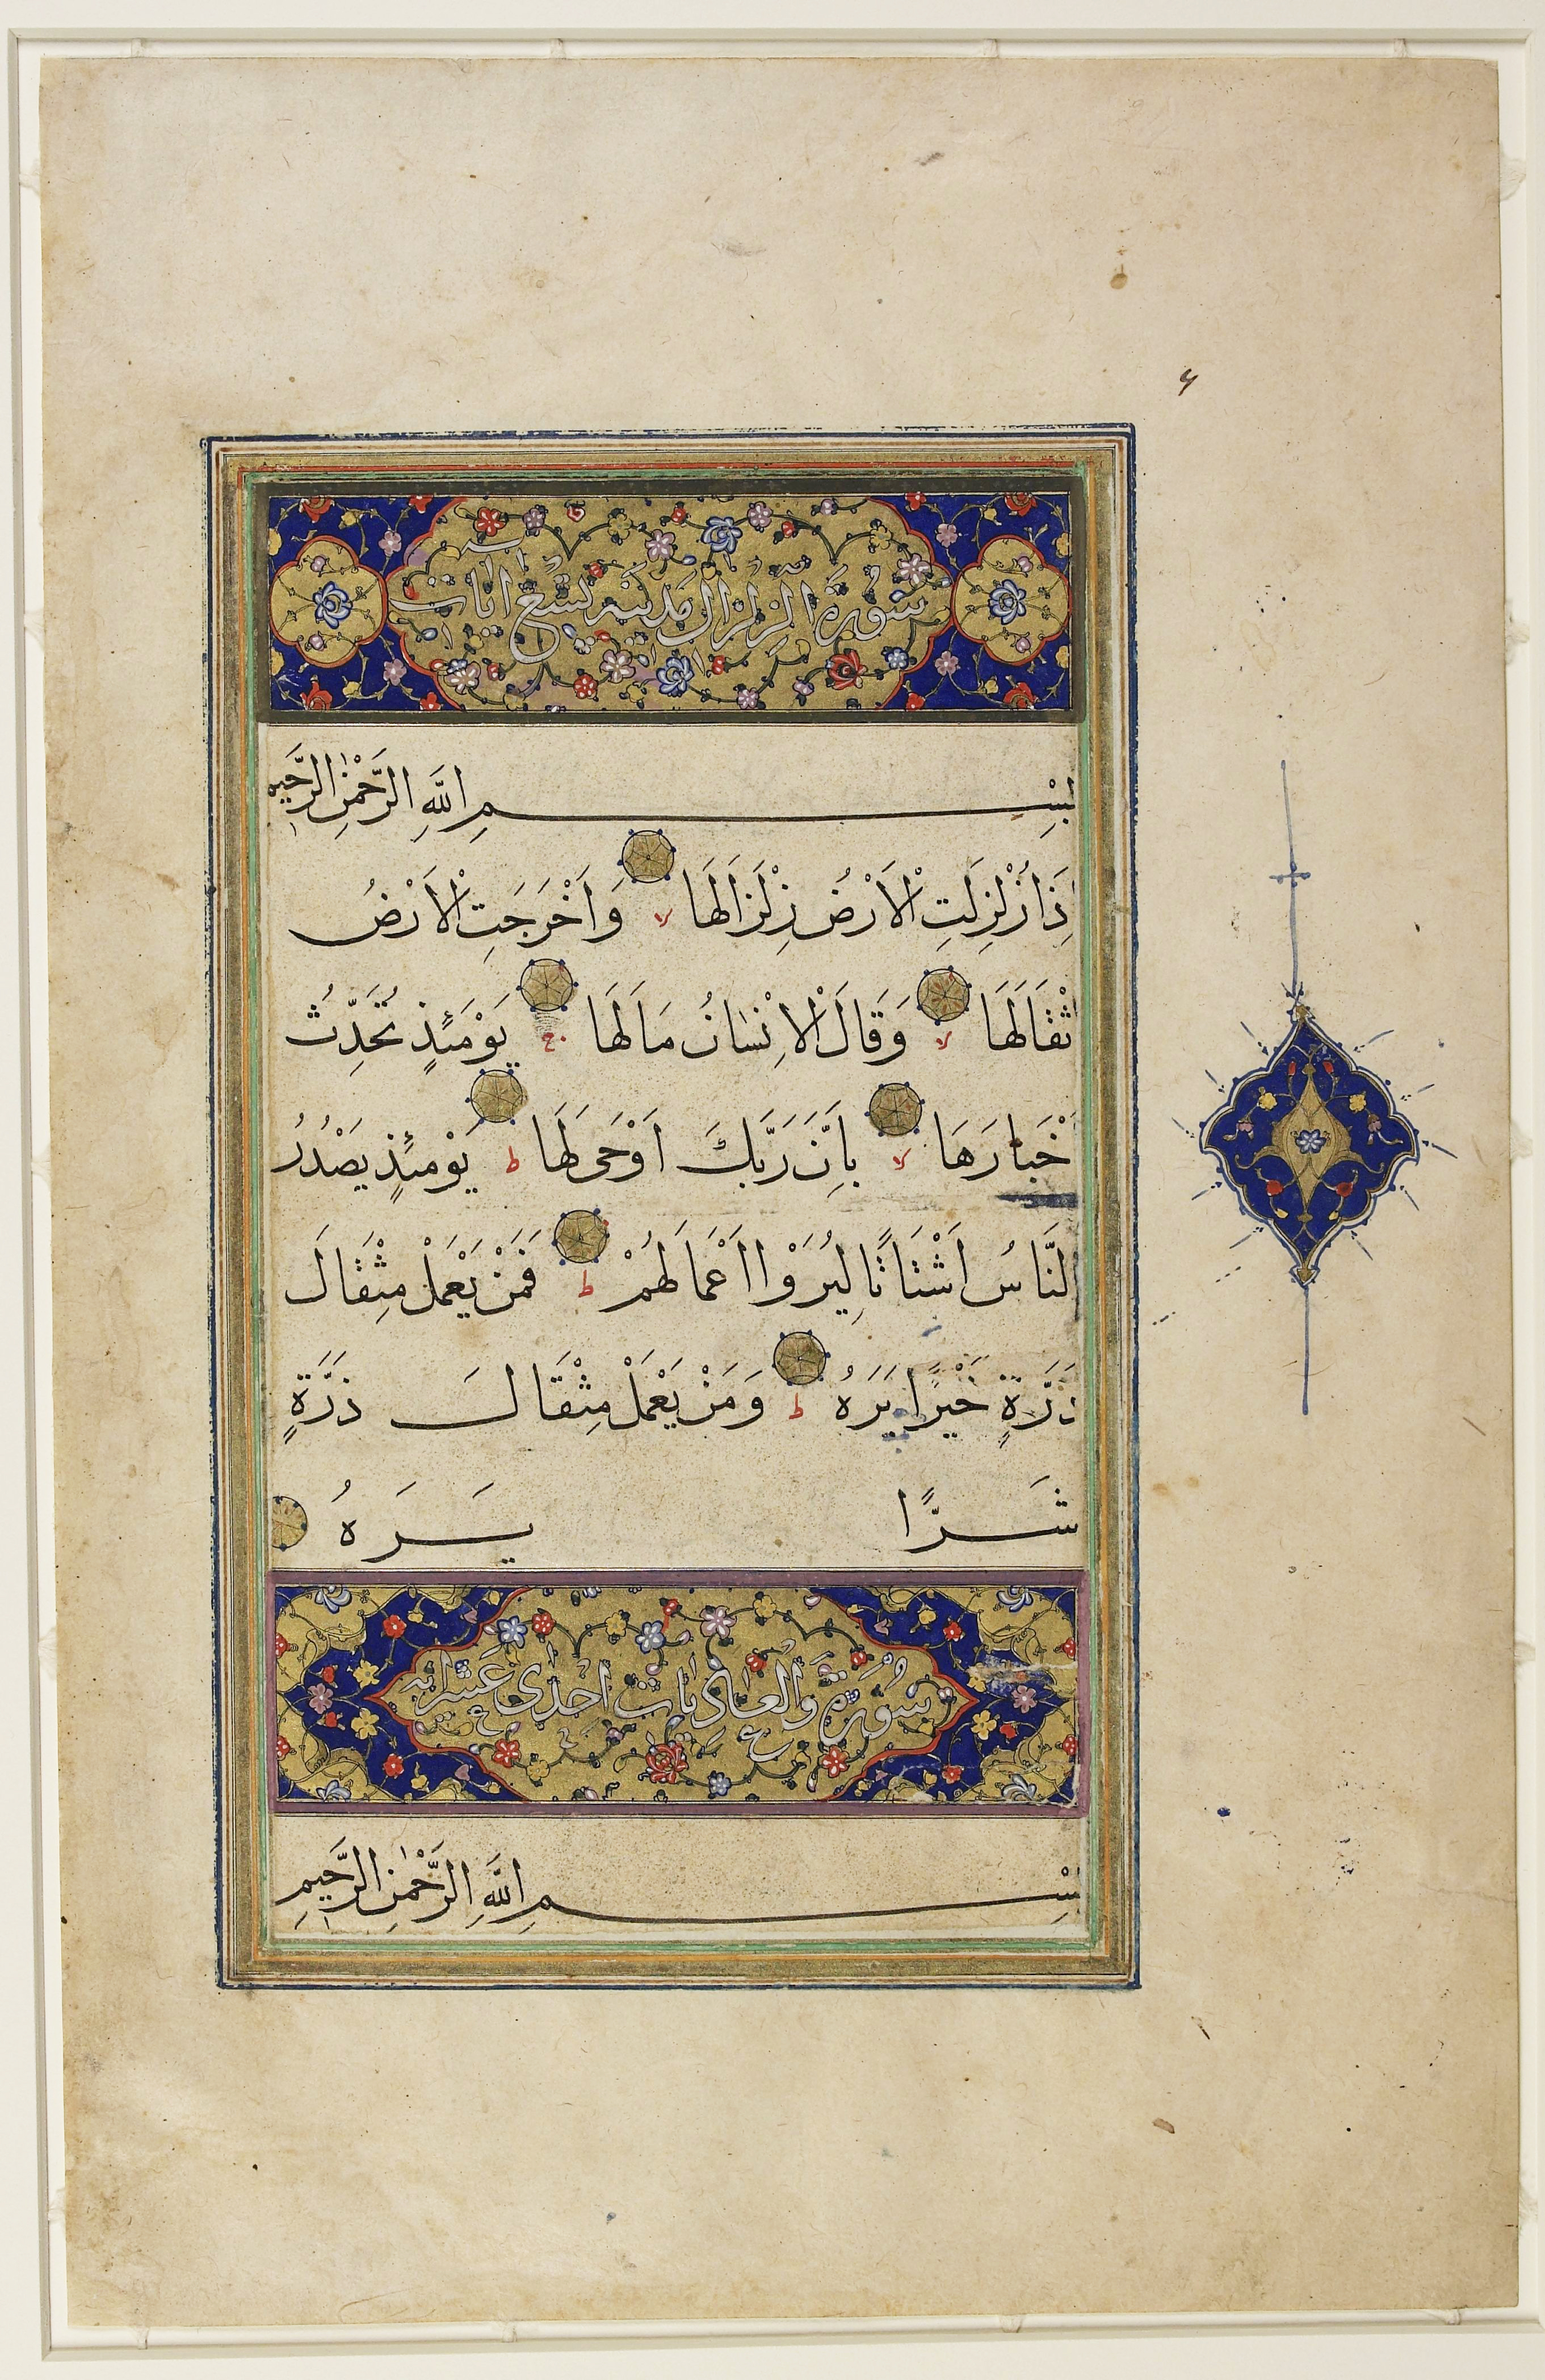 سُورَةُ الزِلْزَال مَدَنيه تِسْعُ آيَات
بِسْمِ اللَّهِ الرَّحْمٰنِ الرَّحِيمِ
اِذَا زُلْزِلَتِ الْاَرْضُ زِلْزَالَهَا لا وَاَخْرَجَتِ الْاَرْضُ
اَثْقَالَهَا لا وَقَالَ الْاِنْسَانُ مَالَهَا ج يَوْمَئِذٍ تُحَدِّثُ
اَخْبَارَهَا لا بِاَنَّ رَبَّكَ اَوْحَى لَهَا ط يَوْمَئِذٍ يَصْدُرُ
النَّاسُ اَشْتَاتًا لِيُرَوْا اَعْمَالَهُمْ ط فَمَنْ يَعْمَلْ مِثْقَالَ
ذَرَّةٍ خَيْرًا يَرَهُ ط وَمَنْ يَعْمَلْ مِثْقَالَ ذَرَّةٍ
شَرًّا يَرَهُ
سُورَةُ وَالْعَادِيَات اِحْدٰى عَشَر آيه
بِسْمِ اللَّهِ الرَّحْمٰنِ الرَّحِيمِ